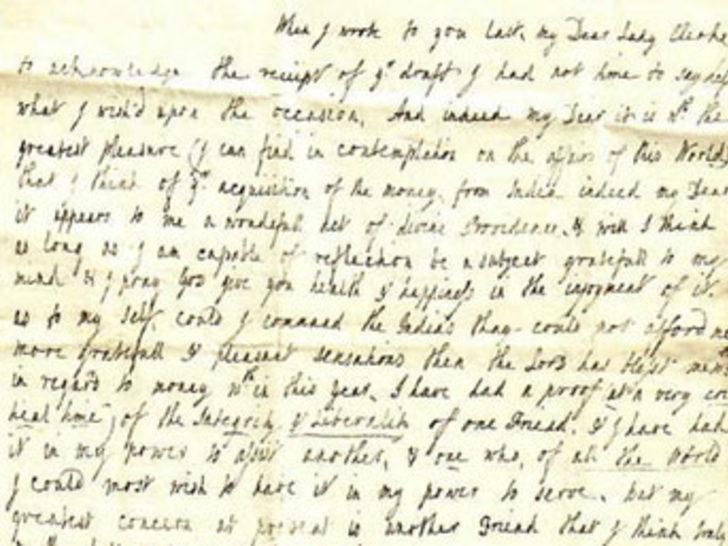 When I wrote to you last, my Dear Lady Clerke
to acknowledge the receipt of yr draft I had not time to say
what I wish'd upon the occasion, And indeed my Dear it is wth the
greatest pleasure (I can find in contemplation on the affairs of this World)
that I think of yr acquisition of the money from India indeed my Dear
it appears to me a wondefull act of divine Providence, & will I think
as long as I am capable of reflection be a subject gratefull to my
mind & I pray God give you health & happiness in the injoyment of it.
as to my self, could I command the Indias they could not afford me
more gratefull & pleasant sensations then the Lord has blest
in regard to money wth in this year, I have had a proof at a very
time, of the Integrity & Liberality of one Friend. & I have had
it in my power to assist another, & one who, of all the World
I could most wish to have it in my power to serve. but my
greatest concern at present is another Friend that I think truly